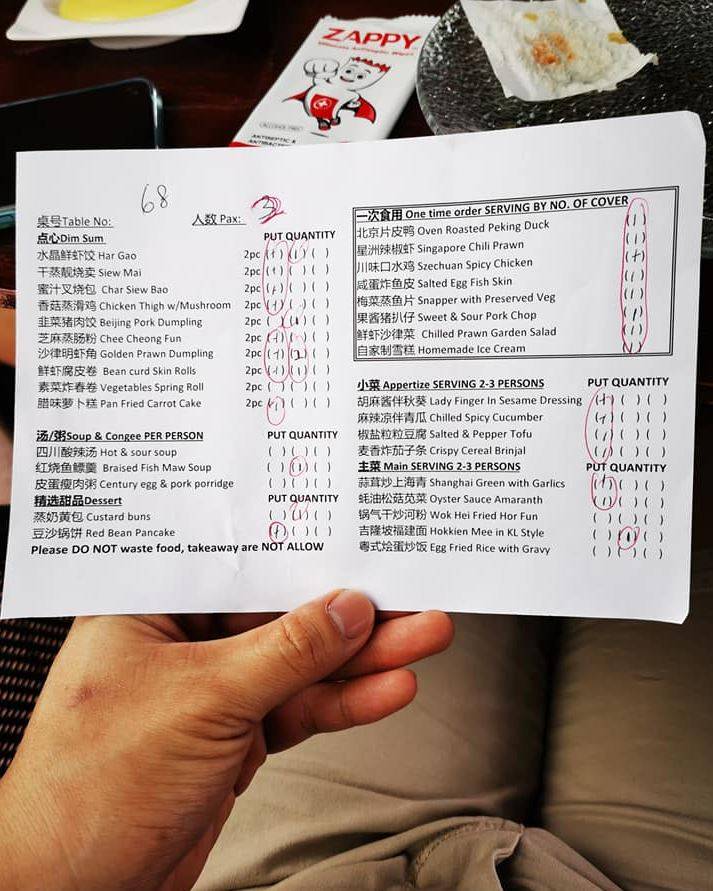 ZAPPY
Ultimate Antiseptic Wipes
ALCOHOL FREE
ANTISEPTIC &
桌号Table No: 68 人数 Pax: 3
点心Dim Sum PUT QUANTITY
水晶鲜虾饺 Har Gao 2pc (1) (1) ( )
干蒸靓烧卖 Siew Mai 2pc (1) ( ) ( )
蜜汁叉烧包 Char Siew Bao 2pc (1) ( ) ( )
香菇蒸滑鸡 Chicken Thigh w/Mushroom 2pc (1) ( ) ( )
韭菜猪肉饺 Beijing Pork Dumpling 2pc
芝麻蒸肠粉 Chee Cheong Fun 2pc (1) ( ) ( )
沙律明虾角 Golden Prawn Dumpling 2pc (1)
鲜虾腐皮卷 Bean curd Skin Rolls 2pc (1)
素菜炸春卷 Vegetables Spring Roll 2pc ( ) ( ) ( )
腊味萝卜糕 Pan Fried Carrot Cake 2pc (1) ( ) ( )
汤/粥Soup & Congee PER PERSON PUT QUANTITY
四川酸辣汤 Hot & sour soup ( ) ( ) ( )
红烧鱼鳔羹 Braised Fish Maw Soup ( ) (1) ( )
皮蛋瘦肉粥 Century egg & pork porridge ( ) ( ) ( )
精选甜品Dessert PUT QUANTITY
蒸奶黄包 Custard buns ( ) (1) ( )
豆沙锅饼 Red Bean Pancake (1) ( ) ( )
Please DO NOT waste food, takeaway are NOT ALLOW
一次食用 One time order SERVING BY NO. OF COVER
北京片皮鸭 Oven Roasted Peking Duck (1)
星洲辣椒虾 Singapore Chili Prawn (1)
川味口水鸡 Szechuan Spicy Chicken (1)
咸蛋炸鱼皮 Salted Egg Fish Skin (1)
梅菜蒸鱼片 Snapper with Preserved Veg (1)
果酱猪扒仔 Sweet & Sour Pork Chop (1)
鲜虾沙律菜 Chilled Prawn Garden Salad (1)
自家制雪糕 Homemade Ice Cream (1)
小菜 Appertize SERVING 2-3 PERSONS PUT QUANTITY
胡麻酱伴秋葵 Lady Finger In Sesame Dressing (1) ( ) ( )
麻辣凉伴青瓜 Chilled Spicy Cucumber (1) ( ) ( )
椒盐粒粒豆腐 Salted & Pepper Tofu (1) ( ) ( )
麦香炸茄子条 Crispy Cereal Brinjal (1) ( ) ( )
主菜 Main SERVING 2-3 PERSONS PUT QUANTITY
蒜茸炒上海青 Shanghai Green with Garlics (1) ( ) ( )
蚝油松菇苋菜 Oyster Sauce Amaranth (1) ( ) ( )
锅气干炒河粉 Wok Hei Fried Hor Fun ( ) ( ) ( )
吉隆坡福建面 Hokkien Mee in KL Style ( ) (1) ( )
粤式烩蛋炒饭 Egg Fried Rice with Gravy ( ) ( ) ( )